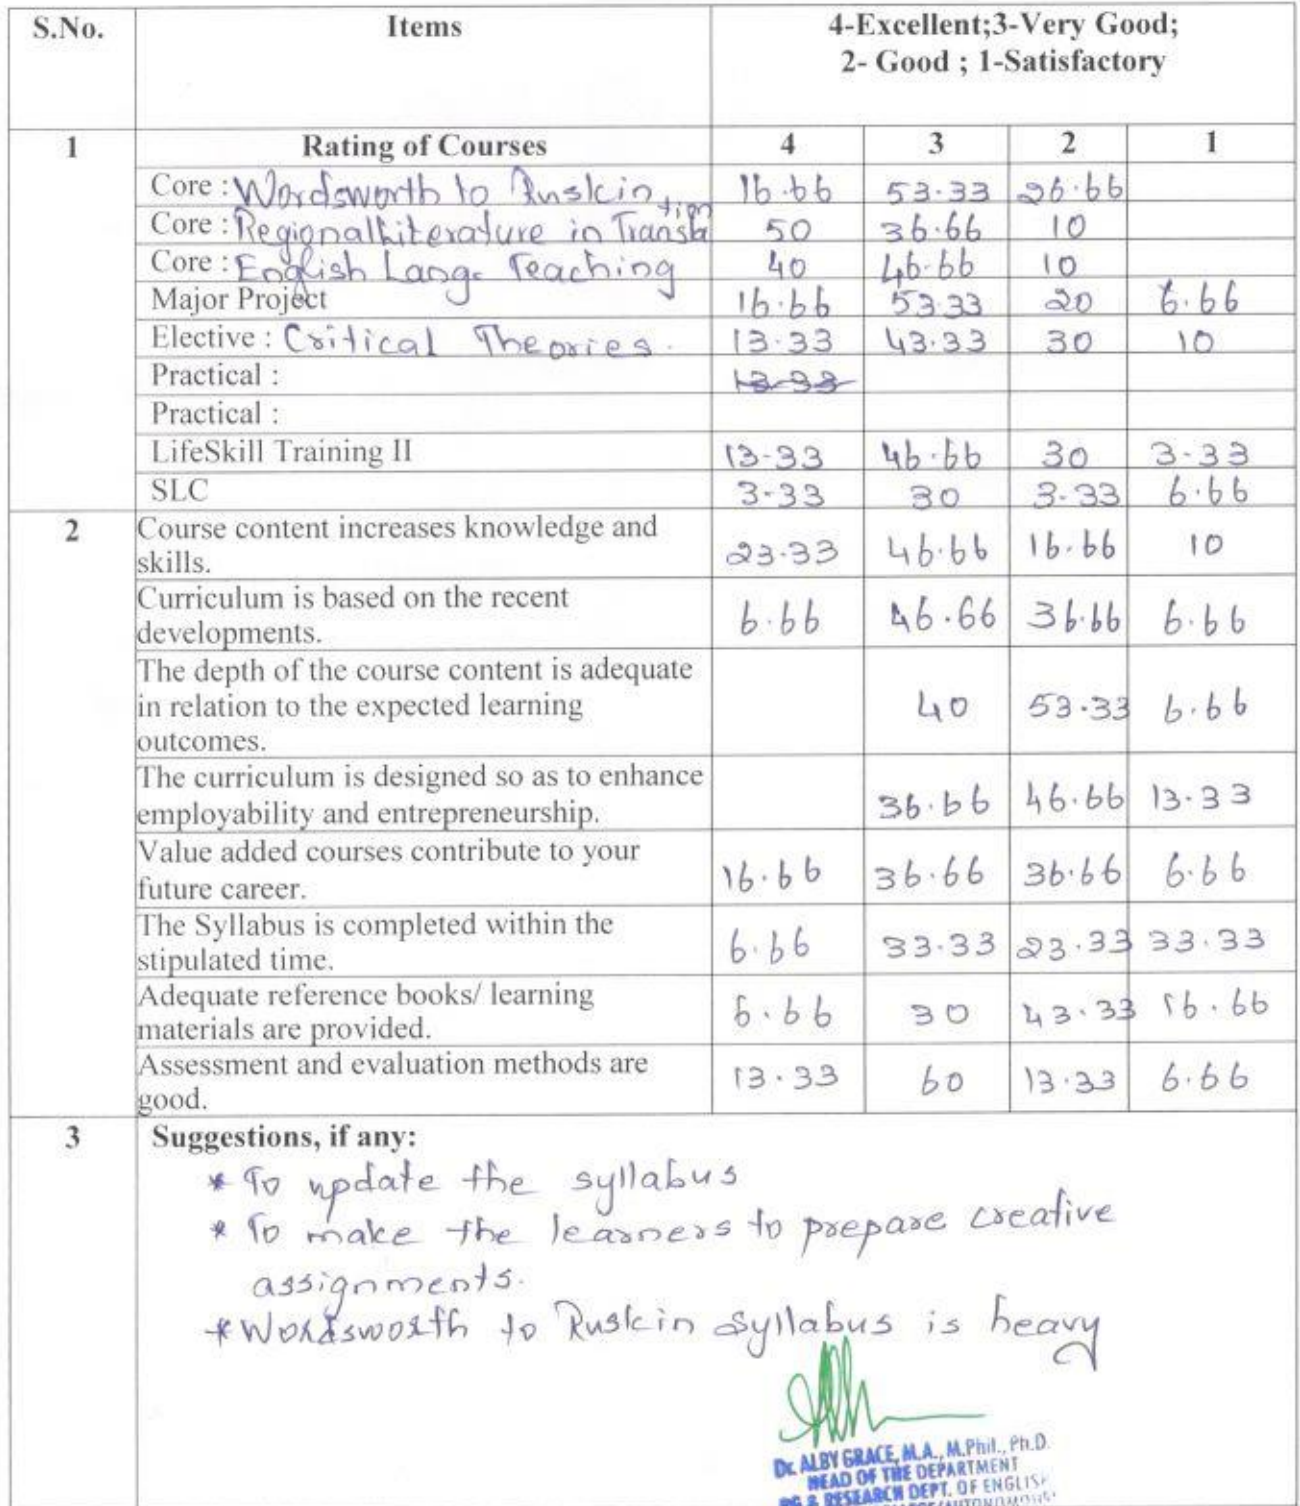 S.No. Items 4-Excellent;3-Very Good;
2- Good ; 1-Satisfactory
1 Rating of Courses 4 3 2 1
Core : Wordsworth to Ruskin 16.66 53.33 26.66
Core : Regional Literature in Translation 50 36.66 10
Core : English Lang. Teaching 40 46.66 10
Major Project 16.66 53.33 20 6.66
Elective : Critical Theories. 13.33 43.33 30 10
Practical : 13-33
Practical :
LifeSkill Training II 13-33 46.66 30 3-33
SLC 3-33 30 3-33 6.66
2 Course content increases knowledge and
skills. 23.33 46.66 16.66 10
Curriculum is based on the recent
developments. 6.66 46.66 36.66 6.66
The depth of the course content is adequate
in relation to the expected learning 40 53.33 6.66
outcomes.
The curriculum is designed so as to enhance
employability and entrepreneurship. 36.66 46.66 13-33
Value added courses contribute to your
future career. 16.66 36.66 36.66 6.66
The Syllabus is completed within the
stipulated time. 6.66 33.33 23.33 33.33
Adequate reference books/ learning
materials are provided. 6.66 30 43.33 16.66
Assessment and evaluation methods are
good. 13.33 60 13.33 6.66
3 Suggestions, if any:
* To update the syllabus
* To make the learners to prepare creative
assignments.
* Wordsworth to Ruskin syllabus is heavy
Dr. ALBY GRACE, M.A., M.Phil., Ph.D.
HEAD OF THE DEPARTMENT
PG & RESEARCH DEPT. OF ENGLISH